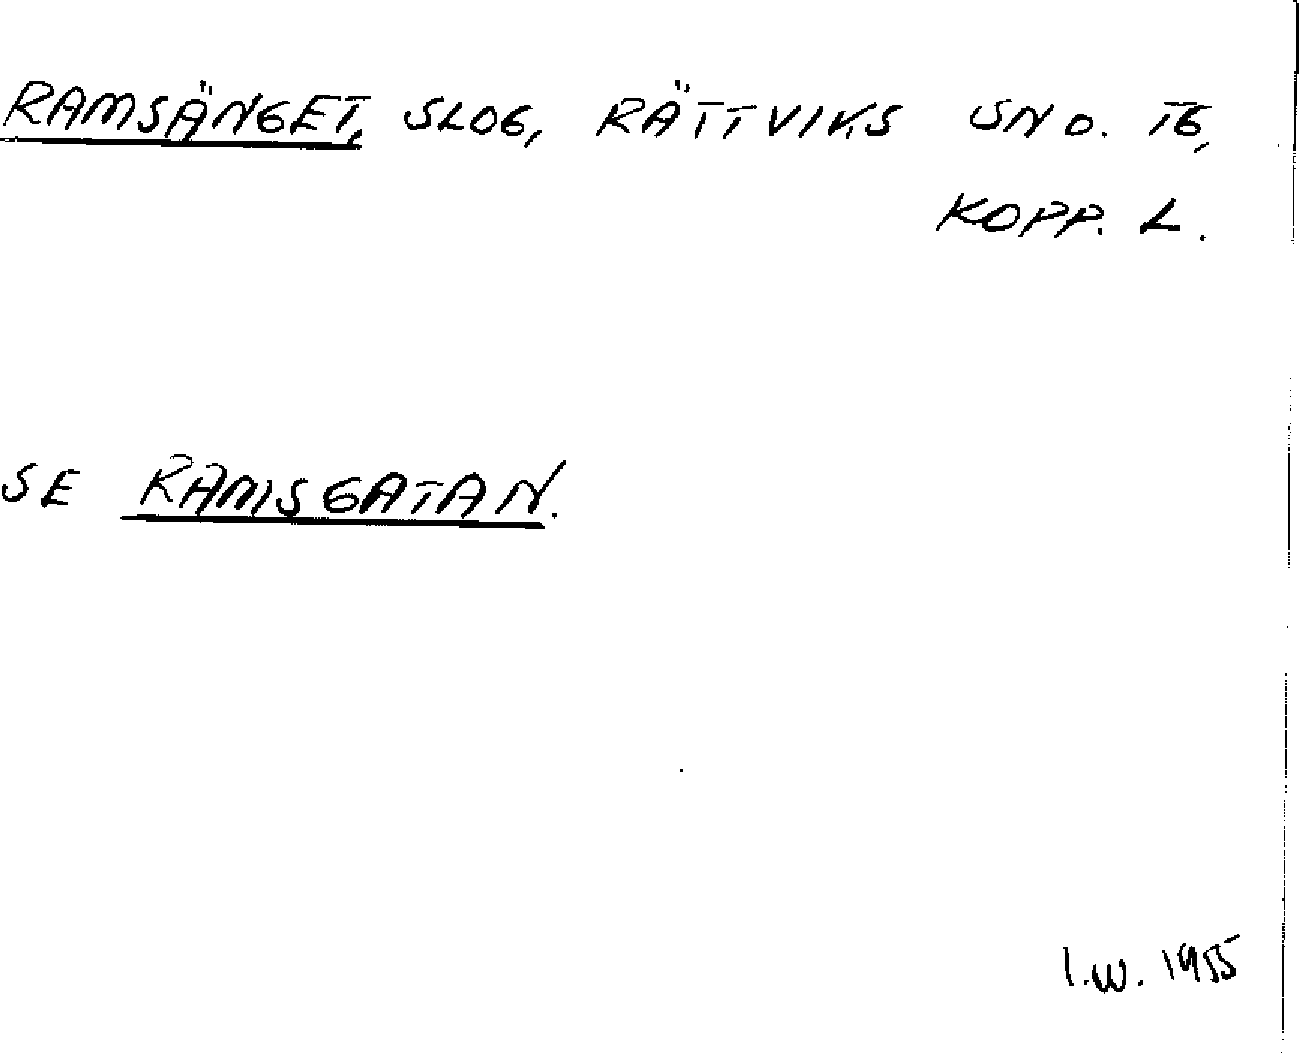 RAMSÄNGET, SLOG, RÄTTVIKS SN O. TG,
KOPP. L.
SE RAMSGATAN.
I.W. 1955